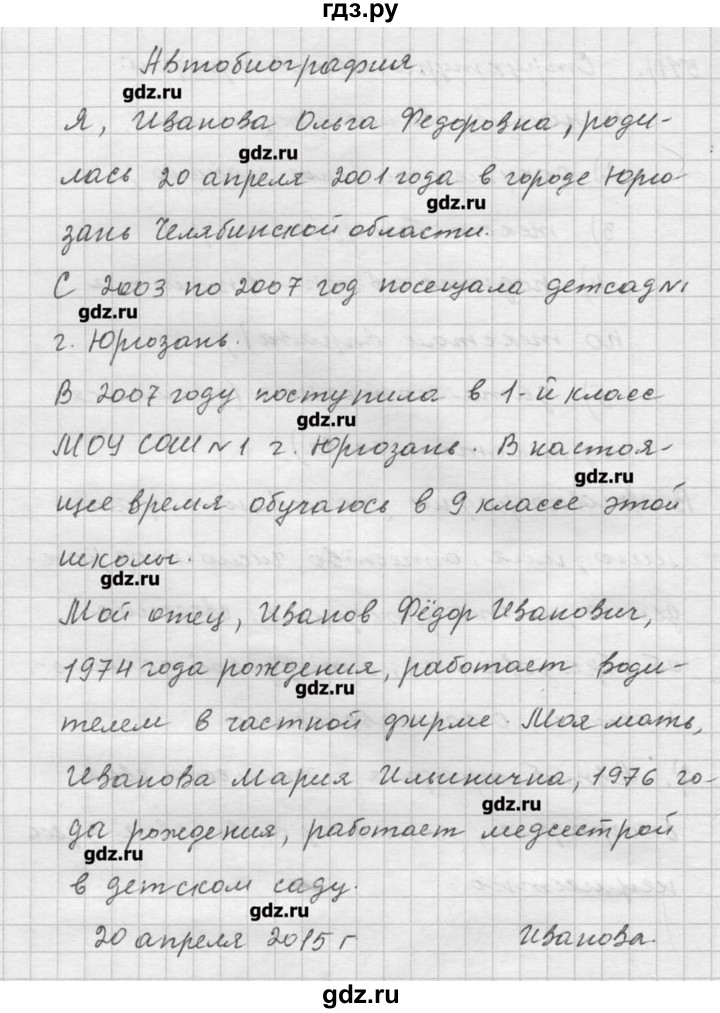 гдз.ру
Автобиография.
gdz.ru
Я, Иванова Ольга Федоровна, роди-
gdz.ru
лась 20 апреля 2001 года в городе Юрю-
gdz.ru
зань Челябинской области.
С 2003 по 2007 год посещала детсад №1
gdz.ru
г. Юрюзань.
В 2007 году поступила в 1-й класс
gdz.ru
МОУ СОШ №1 г. Юрюзань. В настоя-
gdz.ru
щее время обучаюсь в 9 классе этой
школы.
gdz.ru
Мой отец, Иванов Фёдор Иванович,
1974 года рождения, работает води-
gdz.ru
телем в частной фирме. Моя мать,
Иванова Мария Ильинична, 1976 го-
gdz.ru
да рождения, работает медсестрой
gdz.ru
в детском саду.
gdz.ru
20 апреля 2015 г Иванова.
gdz.ru